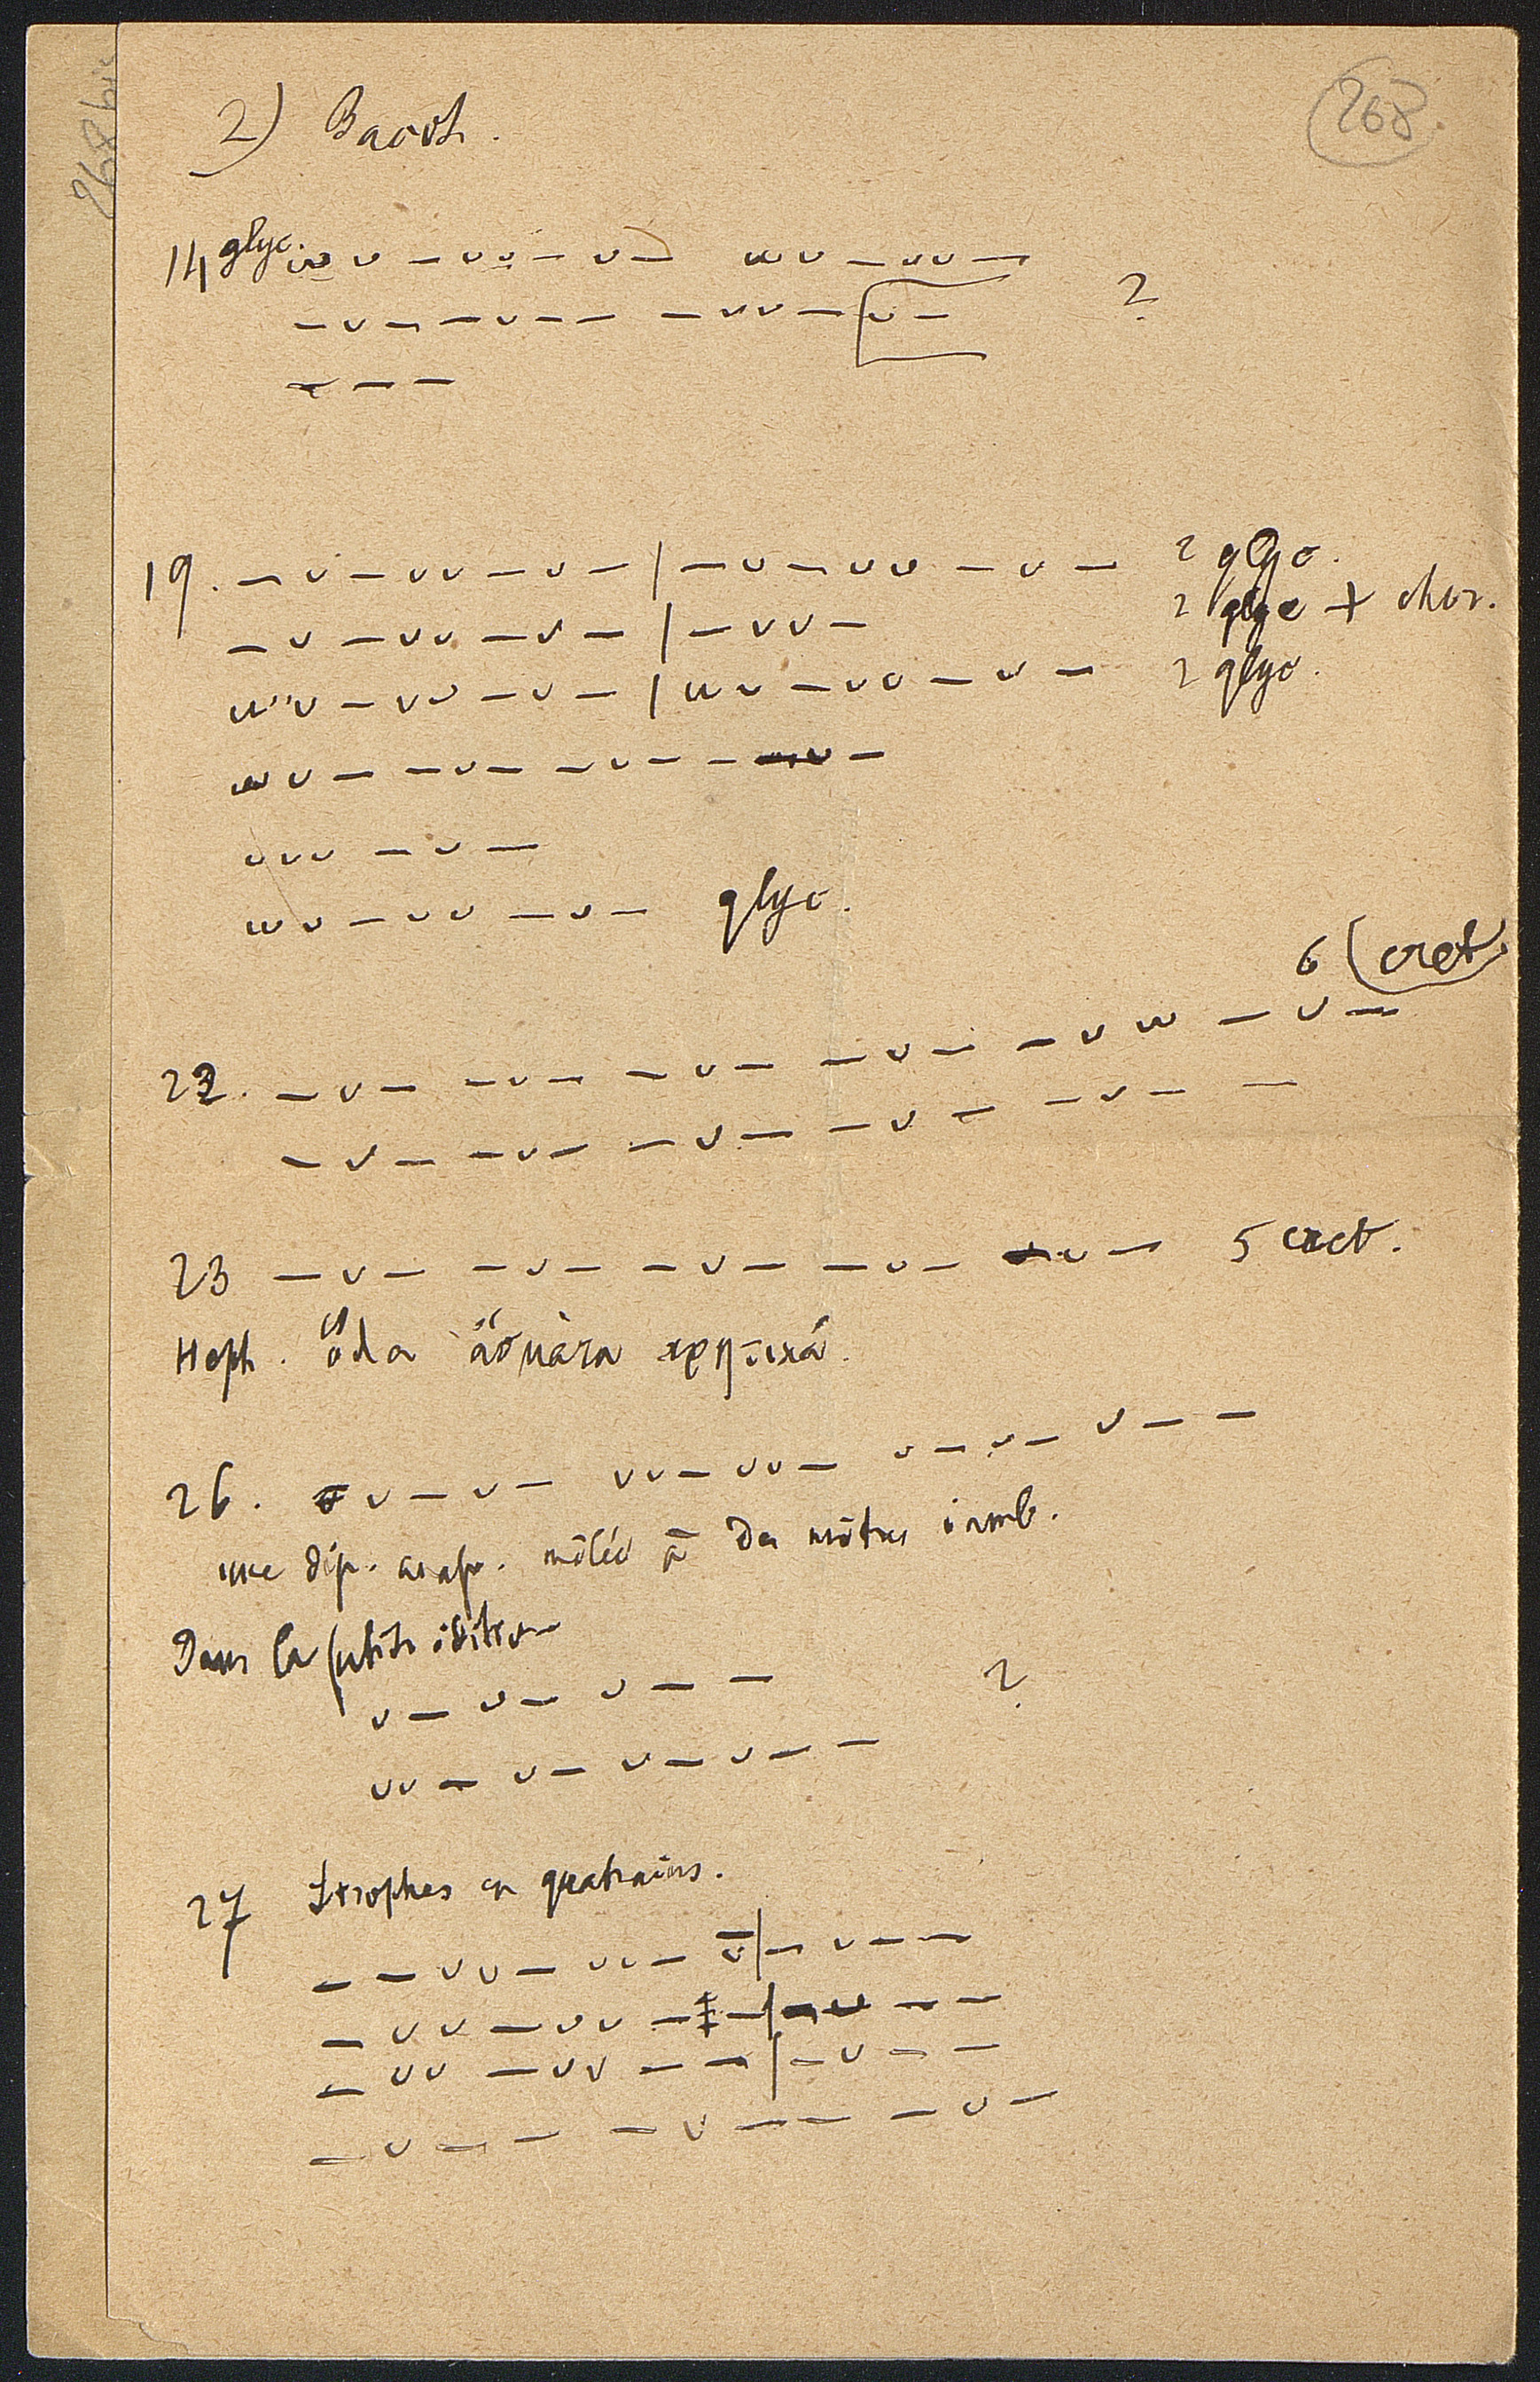 268
268 bis
2) Bacch.
14 glyc. ⏔ ∪ – ∪ ∪ – ∪ – ⏔ ∪ – ∪ ∪ –
– ∪ – – ∪ – – – ∪ ∪ – [ ∪ – ?
∪ – –
19. – ∪ – ∪ ∪ – ∪ – | – ∪ – ∪ ∪ – ∪ – 2 glyc.
– ∪ – ∪ ∪ – ∪ – | – ∪ ∪ – 2 glyc + chor.
⏔ ∪ – ∪ ∪ – ∪ – | ⏔ ∪ – ∪ ∪ – ∪ – 2 glyc.
⏔ ∪ – – ∪ – – ∪ – – ∪ –
∪ ∪ ∪ – ∪ –
⏔ ∪ – ∪ ∪ – ∪ – glyc.
6 (cret
22. – ∪ – – ∪ – – ∪ – – ∪ – – ∪ ⏔ – ∪ –
– ∪ – – ∪ – – ∪ – – ∪ – – ∪ – –
23 – ∪ – – ∪ – – ∪ – – ∪ – – ∪ – 5 cret.
Heph. ὅλα ᾄσματα κρητικά.
26. ∪ ∪ – ∪ – ∪ ∪ – ∪ ∪ – ∪ – ∪ – ∪ – –
une dip. anap. mêlée à des mètres iamb.
Dans la petite édition
∪ – ∪ – ∪ – – ?
∪ ∪ – ∪ – ∪ – ∪ – –
27 Strophes en quatrains.
– – ∪ ∪ – ∪ ∪ – ⏓ | – ∪ – –
– ∪ ∪ – ∪ ∪ – – | – ∪ – –
– ∪ ∪ – ∪ ∪ – – | – ∪ – –
– ∪ – – – ∪ – – – ∪ –